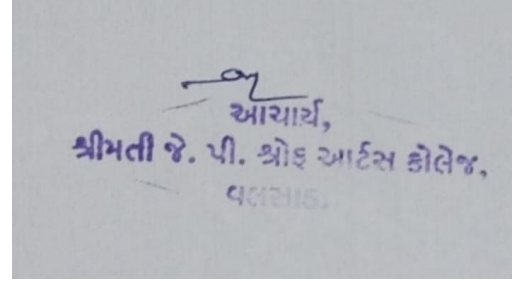 આચાર્ય,
શ્રીમતી જે. પી. શ્રોફ આર્ટસ કોલેજ,
વલસાડ.